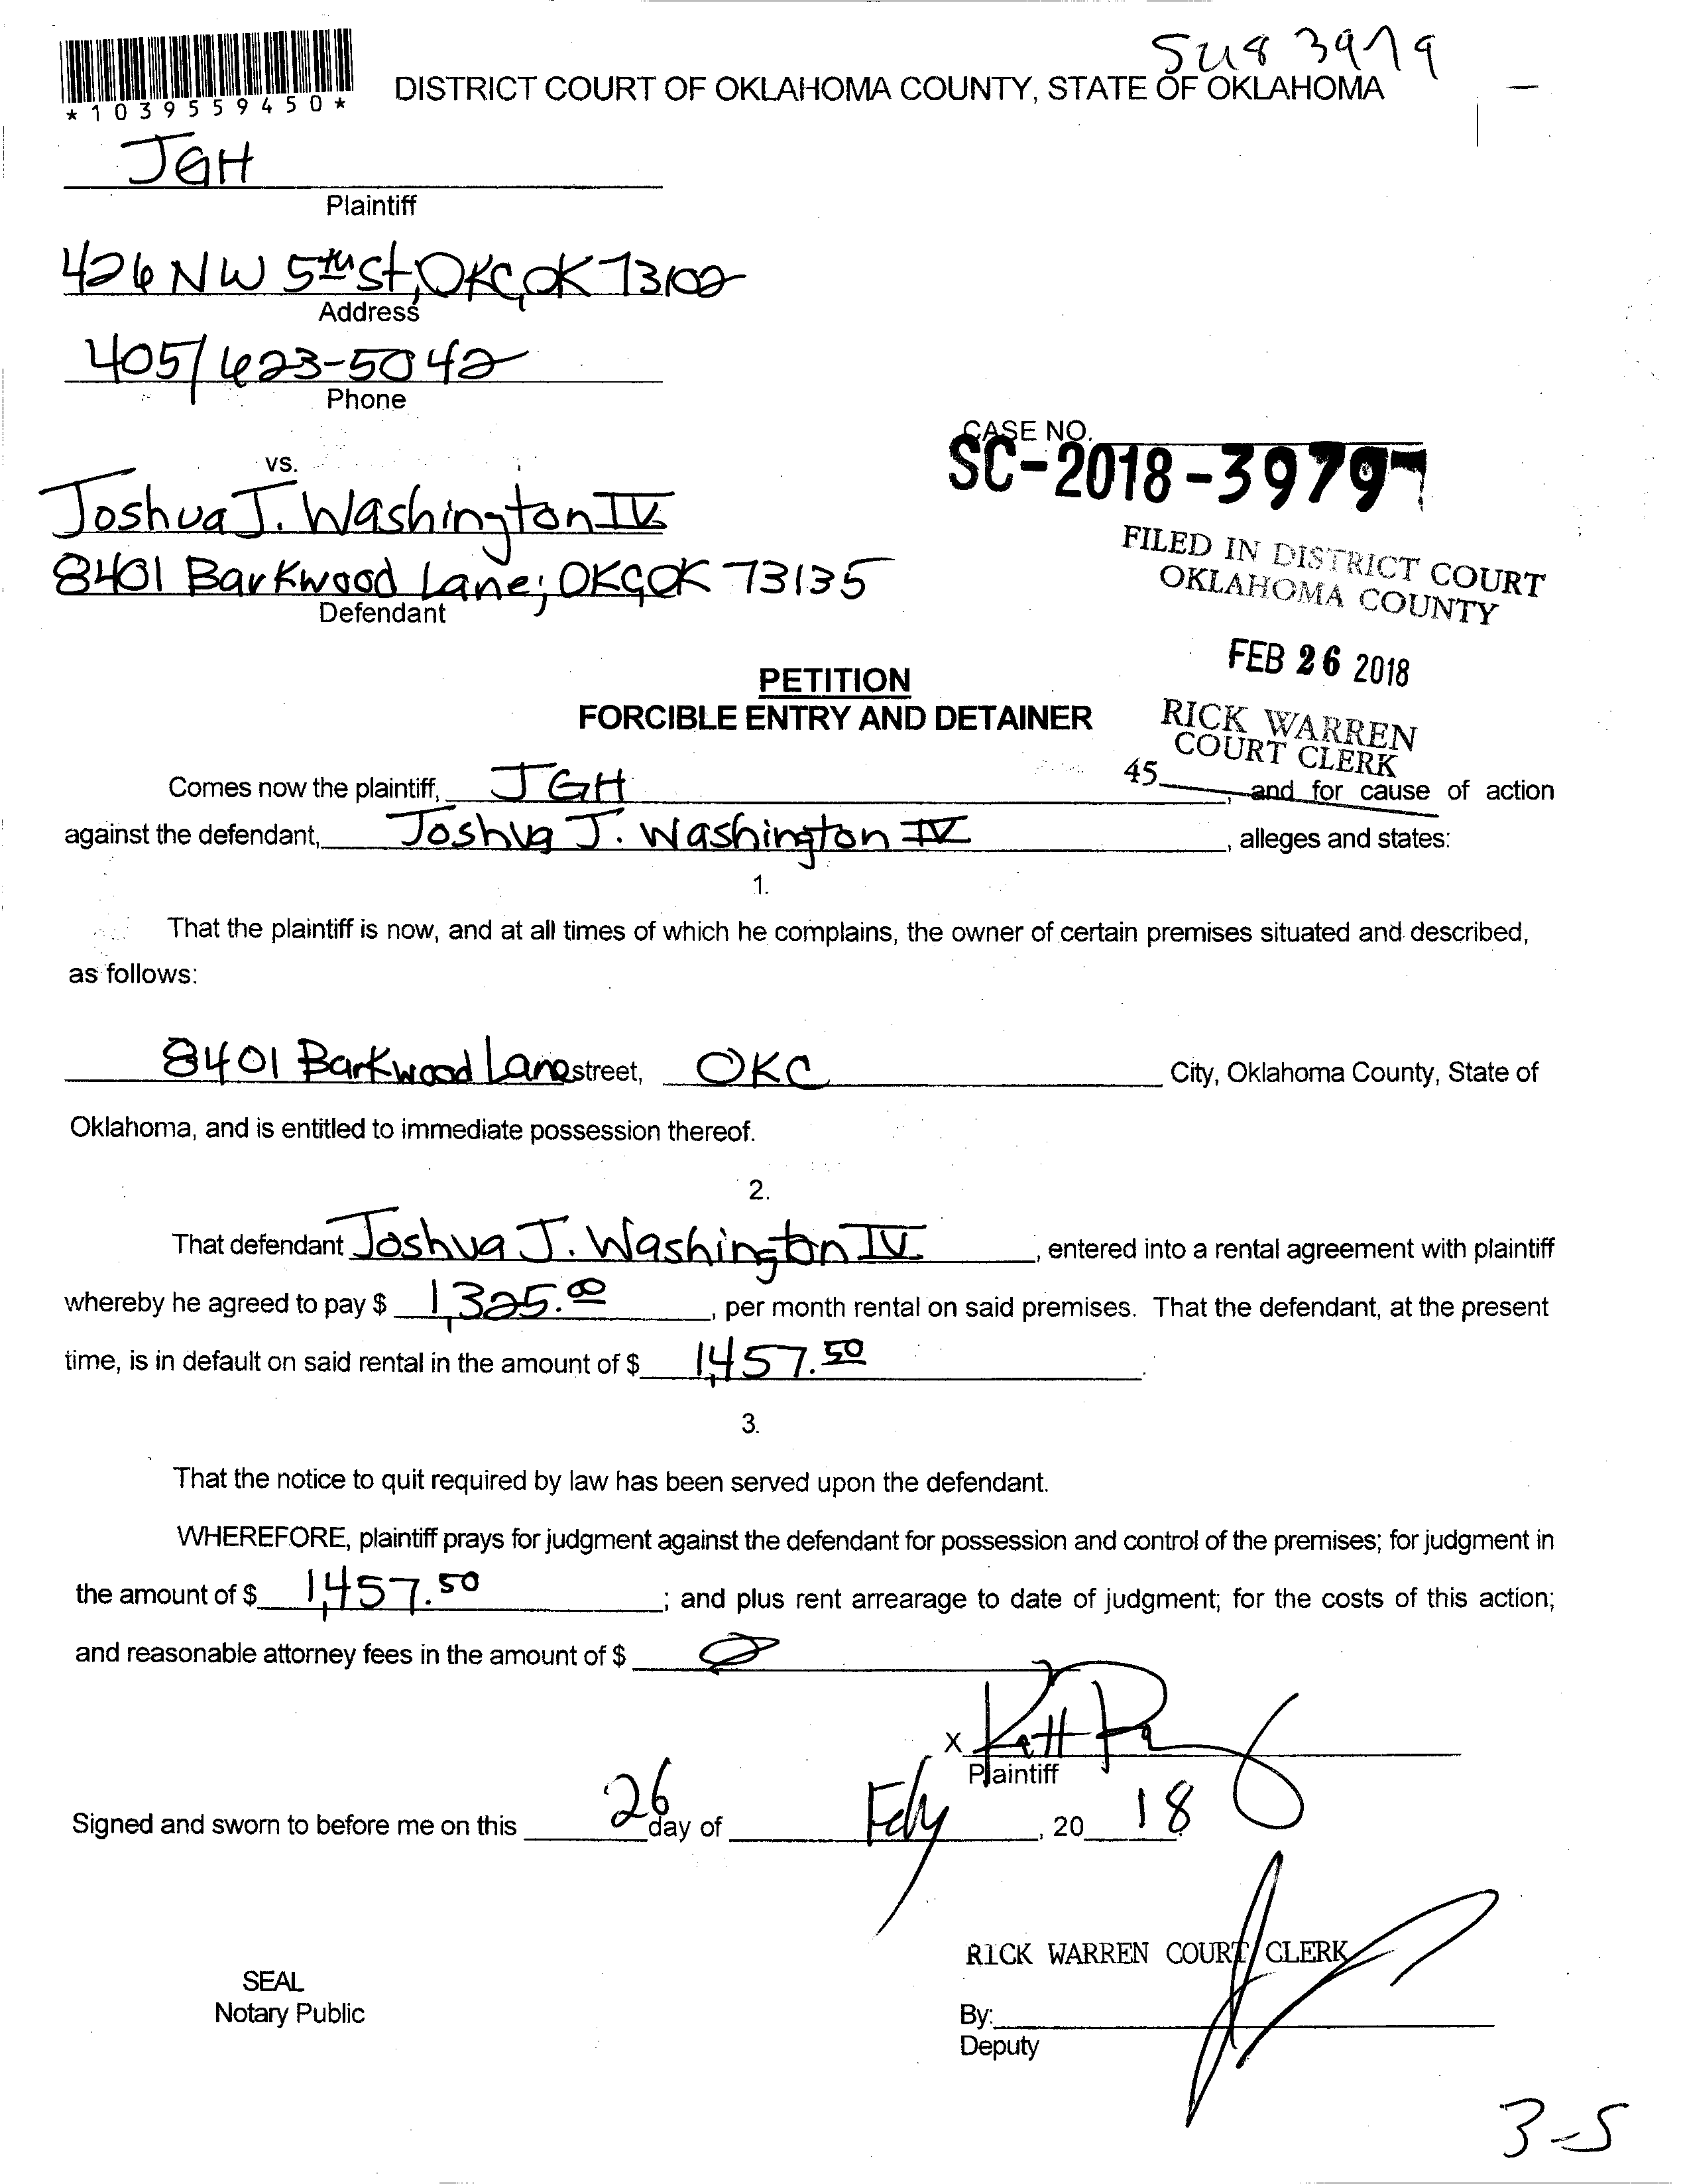 *1039559450*
DISTRICT COURT OF OKLAHOMA COUNTY, STATE OF OKLAHOMA
JGH
Plaintiff
426 NW 5th St, OKC, OK 73102
Address
405/623-5042
Phone
CASE NO.
SC-2018-3979
vs.
Joshua J. Washington IV
8401 Barkwood Lane; OKC, OK 73135
Defendant
FILED IN DISTRICT COURT
OKLAHOMA COUNTY
FEB 26 2018
RICK WARREN
COURT CLERK
45
PETITION
FORCIBLE ENTRY AND DETAINER
Comes now the plaintiff, JGH, and for cause of action
against the defendant, Joshua J. Washington IV, alleges and states:
1.
That the plaintiff is now, and at all times of which he complains, the owner of certain premises situated and described,
as follows:
8401 Barkwood Lane street, OKC City, Oklahoma County, State of
Oklahoma, and is entitled to immediate possession thereof.
2.
That defendant Joshua J. Washington IV, entered into a rental agreement with plaintiff
whereby he agreed to pay $ 1,325.00, per month rental on said premises. That the defendant, at the present
time, is in default on said rental in the amount of $ 1,457.50.
3.
That the notice to quit required by law has been served upon the defendant.
WHEREFORE, plaintiff prays for judgment against the defendant for possession and control of the premises; for judgment in
the amount of $ 1,457.50; and plus rent arrearage to date of judgment; for the costs of this action;
and reasonable attorney fees in the amount of $ 0
X
Plaintiff
Signed and sworn to before me on this 26 day of , 20 18
RICK WARREN COURT CLERK
SEAL
Notary Public
By:
Deputy
3-5